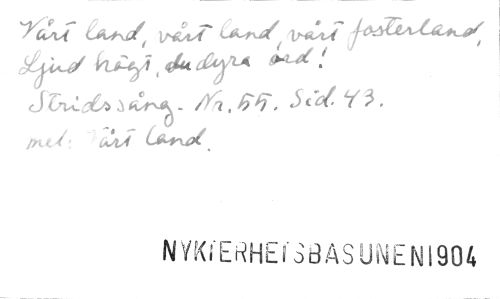 Vårt land, vårt land, vårt fosterland,
Ljud högt, du dyra ord!
Stridssång. Nr. 55. Sid. 43.
mel: Vårt land.
NYKTERHETSBASUNEN 1904